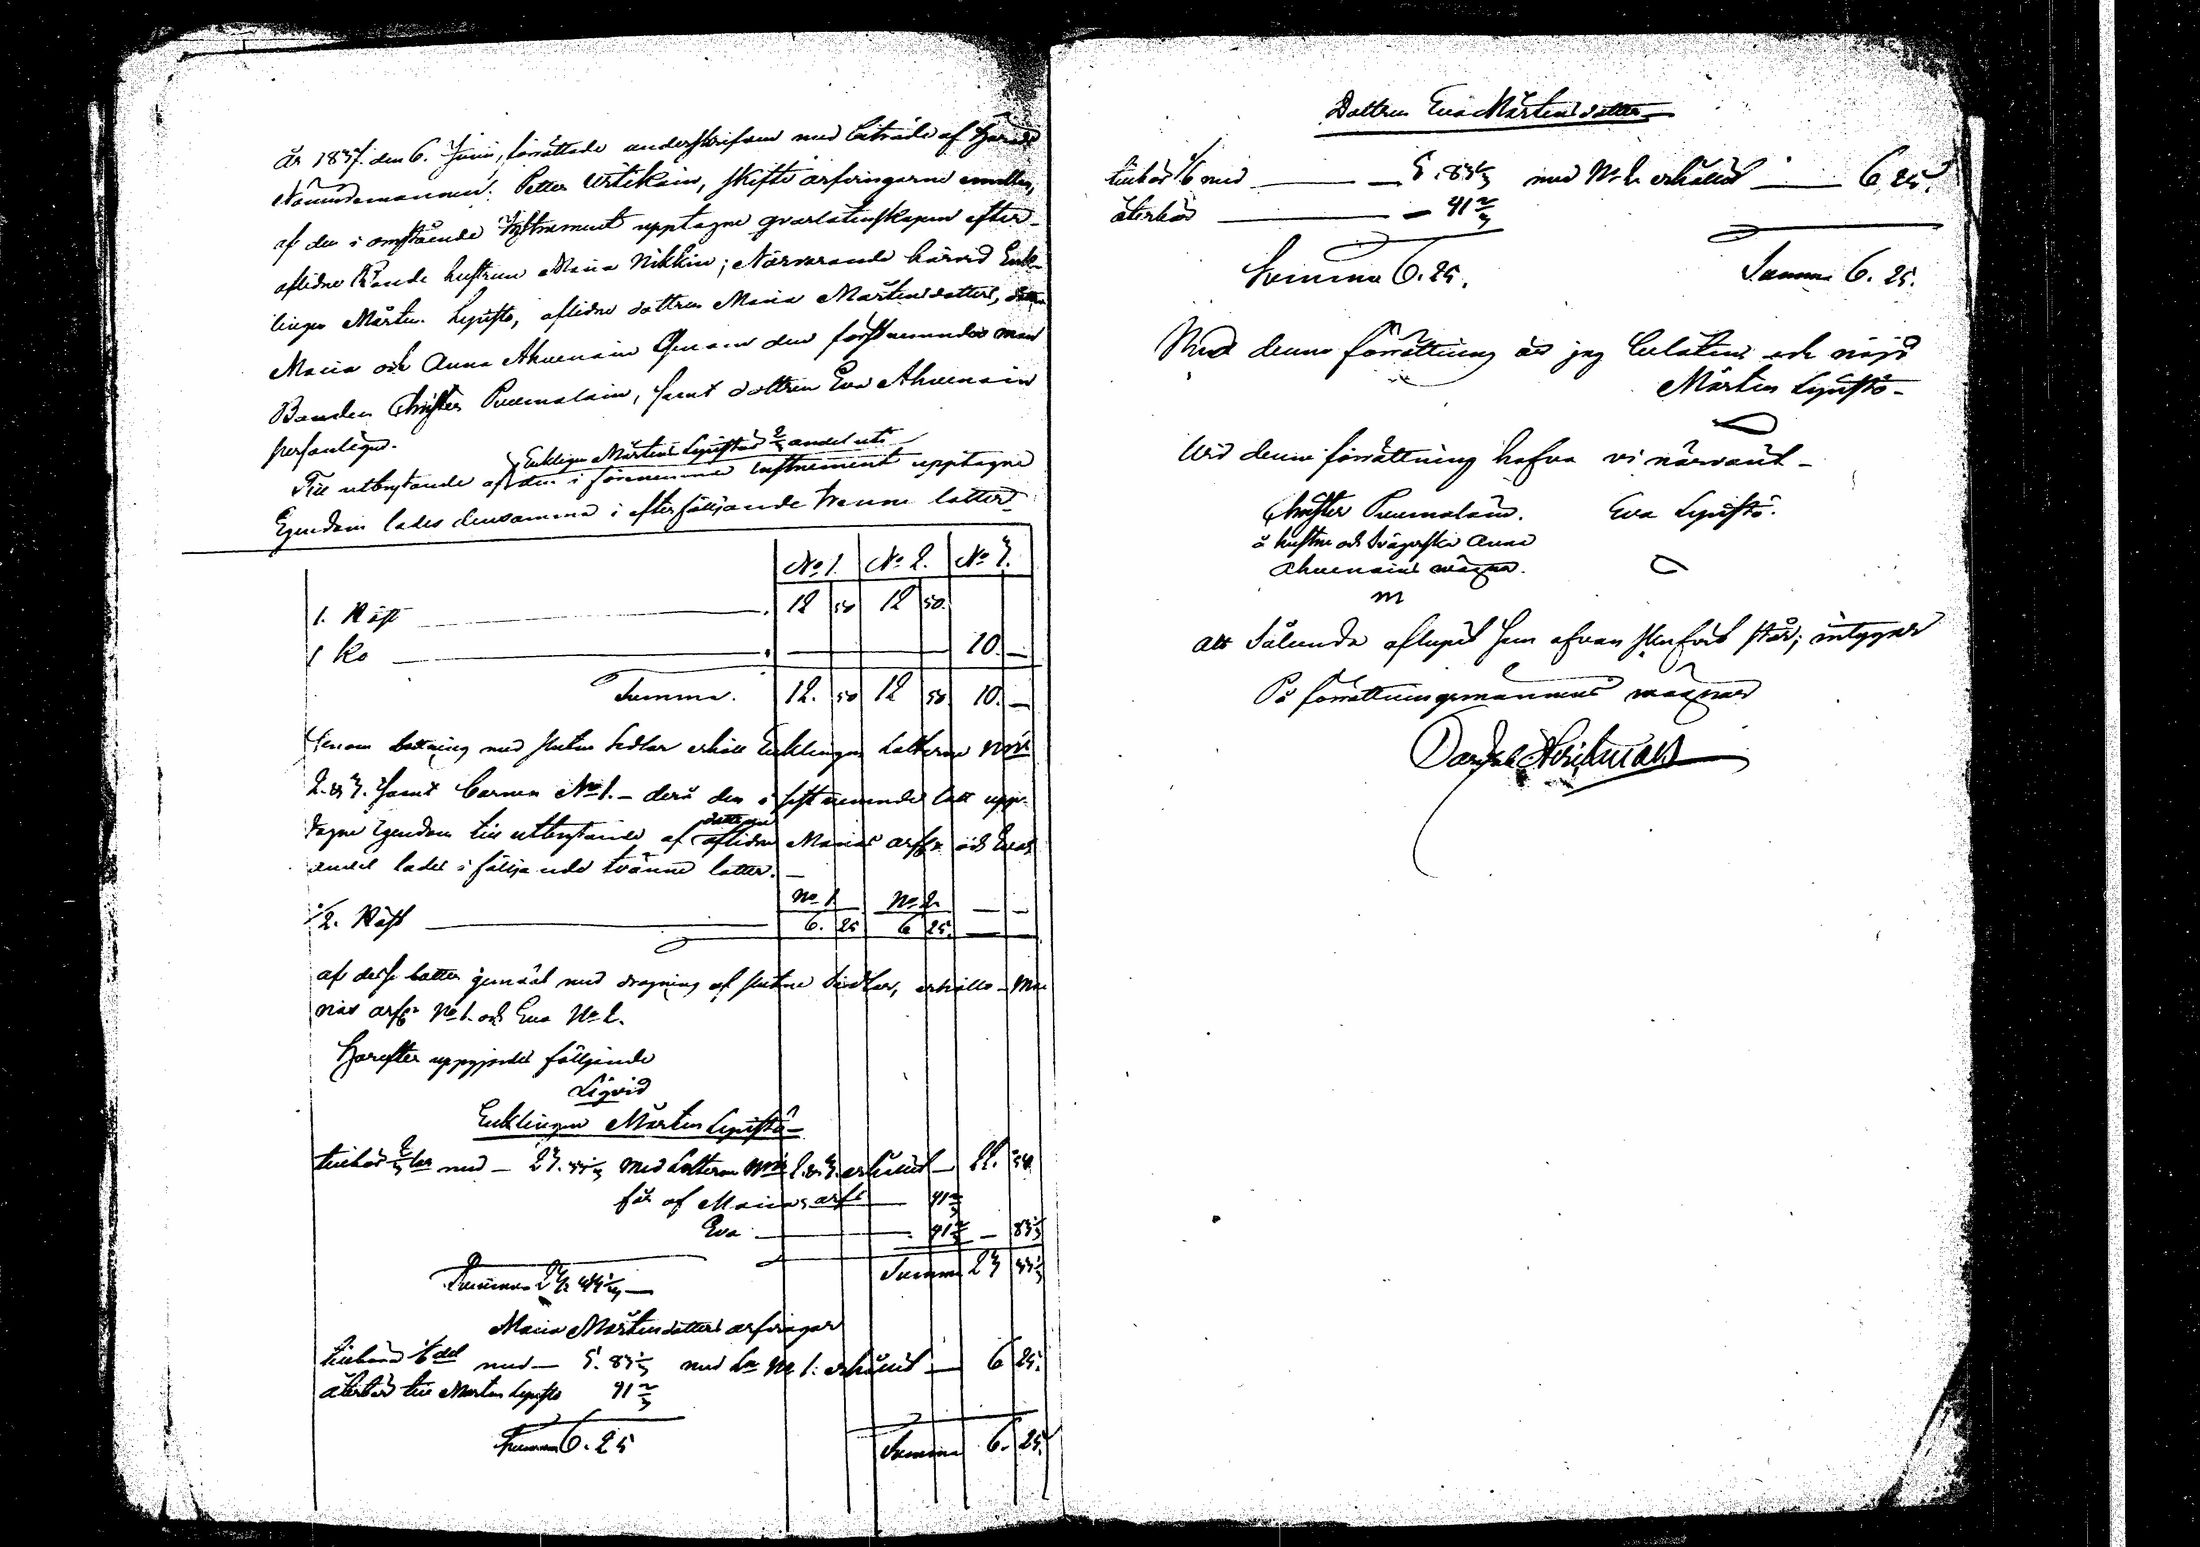 År 1837. den 6. Junii, förrättade underskrifven med biträde af Härads
Nämndemannen: Petter skifte arfvingarne emellan,
af den i omstående Instrument upptagne qvarlåtenskapen efter
aflidne Bonde hustrun Maria Nikkin; Närvarande härvid Enk-
lingen Mårten Lepistö, aflidne dottren Maria Mårtensdotters,
Maria och Anna Ahvenain genom den förstnämndes man
Bonden Christer Puumalain, samt dottren Eva Ahvenain
personligen.
Enklingen Mårten Lepistös 2/3 andel uti
Till utbrytande af den i förenämnde instrument upptagne
Egendom lades densamma i efterföljande trenne lotter
No 1. No 2. No 3.
1. Häst 12 50 12 50.
1 Ko 10. —
Summa. 12. 50 12 50. 10. —
Genom lottning med slutne sedlar erhöll Enklingen Lotterne No
2. & 3. samt barnen No 1. – derå den i sistnämnde lott upp-
tagne Egendom till utbrytande af aflidne Marias arfv. och Evas
andel lades i följande tvänne lotter. —
No 1 No 2. — —
1/2. Häst 6. 25 6 25. —
af desse lotter genast med dragning af slutne Sedlar, erhöllo Ma-
rias arfv. No 1. och Eva No 2.
Härefter uppgjordes följande
Liqvid
Enklingen Mårten Lepistö
tillkår 2/3 med — 23. 33 1/3 med Lotterne 2. & 3. erhållit — 22. 50.
får af Marias arf. 41 2/3
Eva 41 2/3 — 83 1/3
Summa 23. 33 1/3 — Summa 23 33 1/3
Maria Mårtensdotters arfvingar
1/6 del med — 5. 83 1/3 med No 1. erhållit — 6 25.
återbär till Mårten Lepistö 41 2/3
Summa 6. 25 Summa 6. 25.
Dottren Eva Mårtensdotter
1/6 med — 5. 83 1/3 med No 2. erhållit — 6 25.
återbär — 41 2/3
Summa 6. 25. Summa 6. 25.
Med denne förrättning är jag belåten och nöjd
Mårten Lepistö
Vid denne förrättning hafva vi närvarit –
Christer Puumalain. Eva Lepistö.
å hustru och Svägerska Anna
Ahvenains vägnar.
att Sålunda aflupit som ofvan skrifvet står; intygar
På förrättningsmannens vägnar